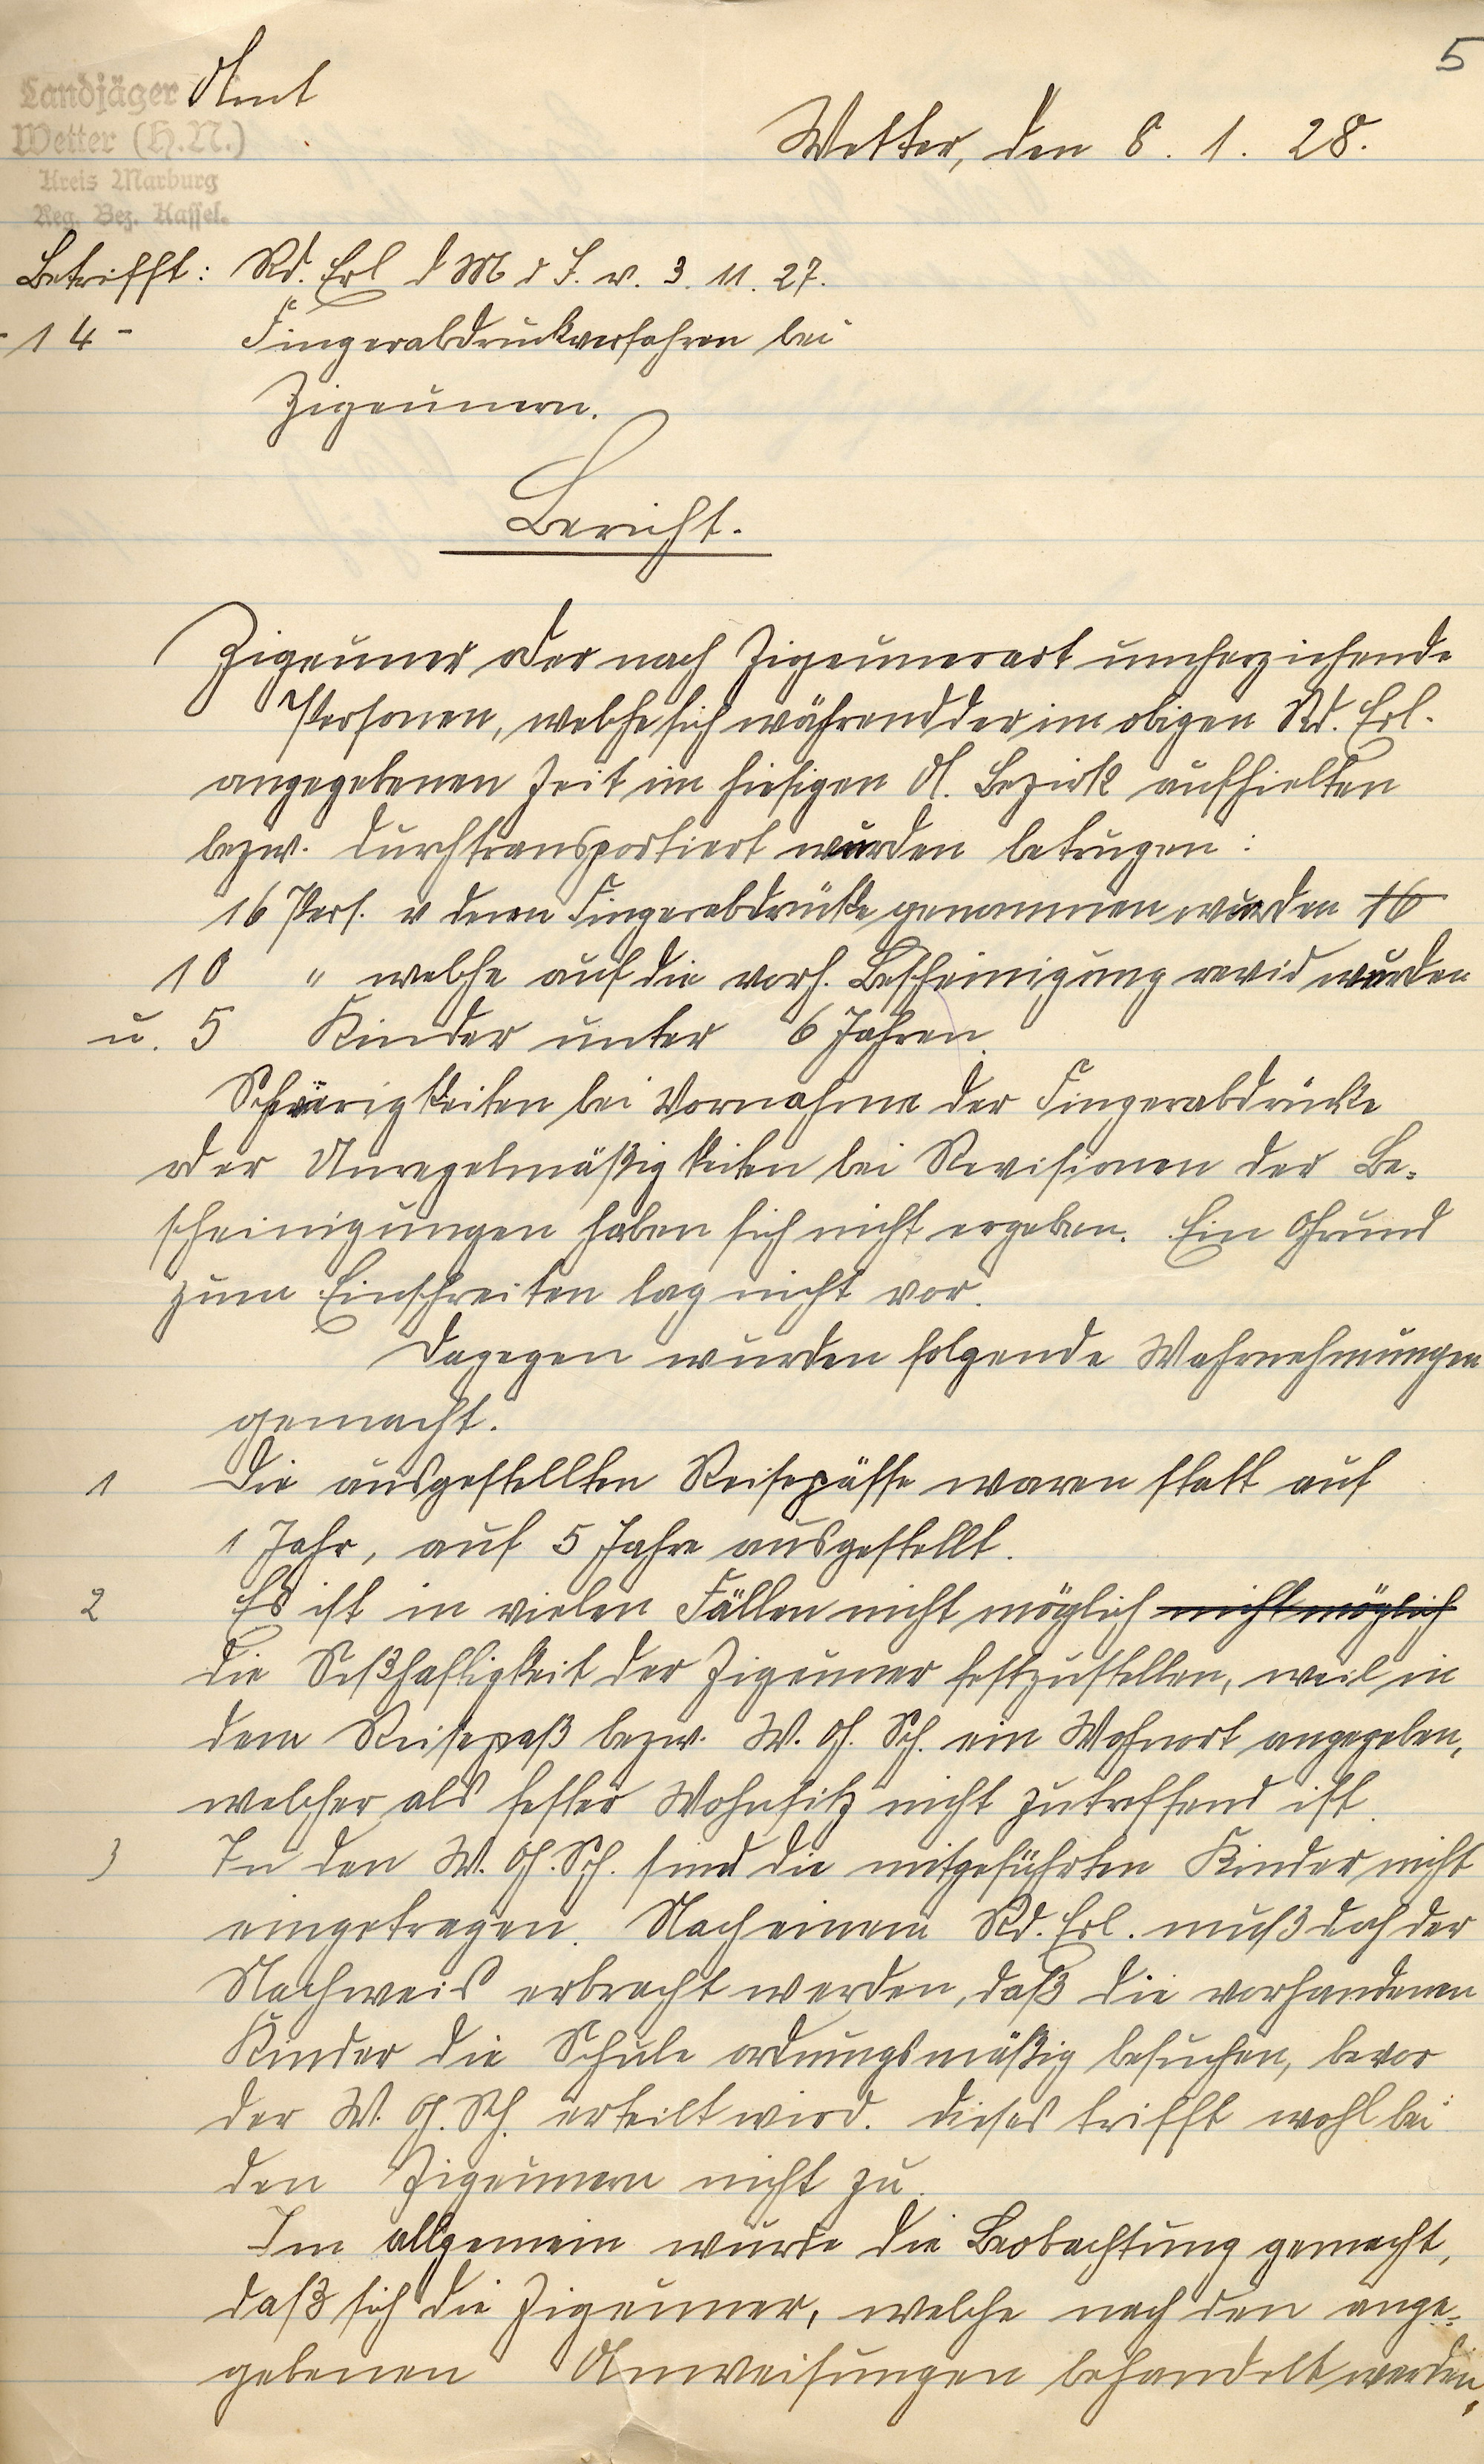 5
Landjäger Amt
Wetter (H.N.)
Kreis Marburg
Reg. Bez. Kassel.
Wetter, den 8. 1. 28.
Betrifft: Rd. Erl d M d I. v. 3. 11. 27.
- 14 - Fingerabdruckverfahren bei
Zigeunern.
Bericht.
Zigeuner oder nach Zigeunerart umherziehende
Personen, welche sich während der im obigen Rd. Erl.
angegebenen Zeit im hiesigen A. Bezirk aufhielten
bezw. durchtransportiert wurden betrugen:
16 Pers. v denen Fingerabdrücke genommen wurden 16
10 " welche auf die vorh. Bescheinigung revid wurden
u. 5 Kinder unter 6 Jahren.
Schwierigkeiten bei Vornahme der Fingerabdrücke
oder Unregelmäßigkeiten bei Revisionen der Be-
scheinigungen haben sich nicht ergeben. Ein Grund
zum Einschreiten lag nicht vor.
Dagegen wurden folgende Wahrnehmungen
gemacht.
1 Die ausgestellten Reisepässe waren statt auf
1 Jahr, auf 5 Jahre ausgestellt.
2 Es ist in vielen Fällen nicht möglich nicht möglich
die Seßhaftigkeit der Zigeuner festzustellen, weil in
dem Reisepaß bezw. W. G. Sch. ein Wohnort angegeben,
welcher als fester Wohnsitz nicht zutreffend ist.
3 In den W. G. Sch. sind die mitgeführten Kinder nicht
eingetragen. Nach einem Rd. Erl. muß doch der
Nachweis erbracht werden, daß die vorhandenen
Kinder die Schule ordnungsmäßig besuchen, bevor
der W. G. Sch. erteilt wird. Dieses trifft wohl bei
den Zigeunern nicht zu.
Im allgemein wurde die Beobachtung gemacht,
daß sich die Zigeuner, welche nach den ange-
gebenen Anweisungen behandelt werden,